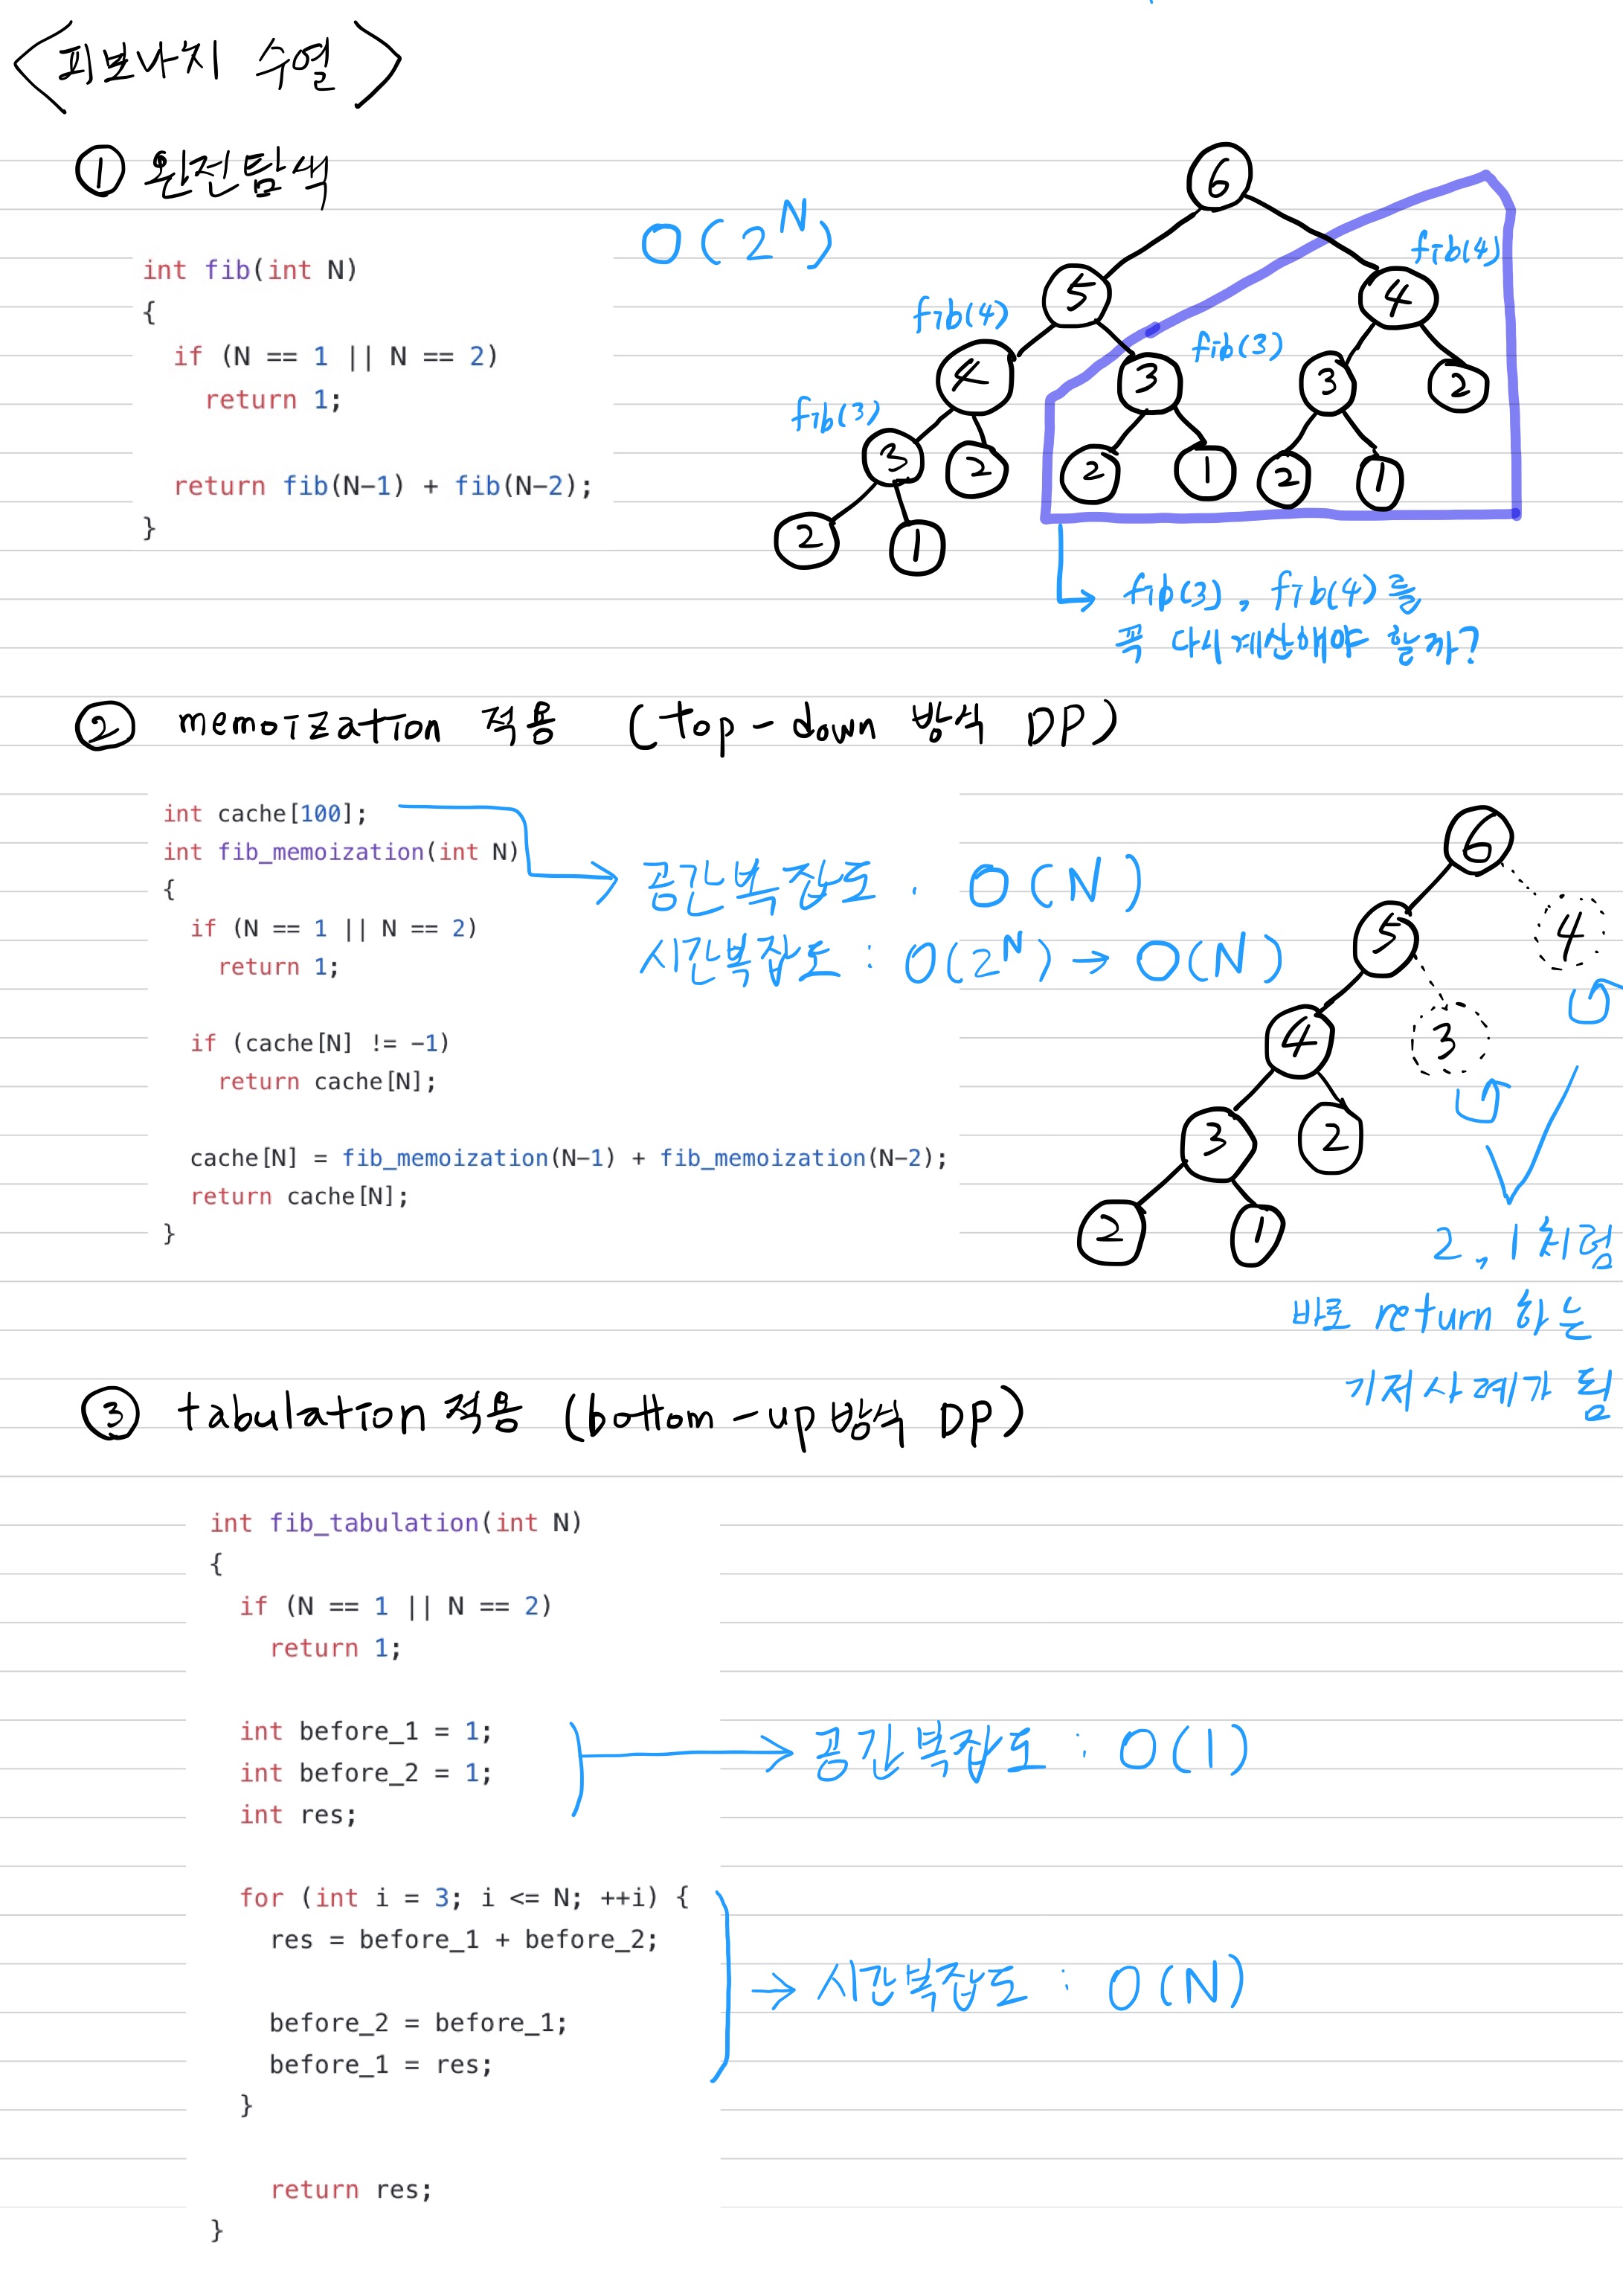 <피보나치 수열>
① 완전탐색
int fib(int N)
{
if (N == 1 || N == 2)
return 1;
return fib(N-1) + fib(N-2);
}
O(2^N)
6
fib(4)
5
4
fib(4)
fib(3)
4
3
3
2
fib(3)
3
2
2
1
2
1
2
1
fib(3), fib(4)를
꼭 다시계산해야 할까?
② memoization 적용 (top-down 방식 DP)
int cache[100];
int fib_memoization(int N)
{
if (N == 1 || N == 2)
return 1;
if (cache[N] != -1)
return cache[N];
cache[N] = fib_memoization(N-1) + fib_memoization(N-2);
return cache[N];
}
공간복잡도 : O(N)
시간복잡도 : O(2^N) → O(N)
6
5
4
4
3
3
2
2
1
2, 1처럼
바로 return 하는
기저사례가 됨
③ tabulation 적용 (bottom-up 방식 DP)
int fib_tabulation(int N)
{
if (N == 1 || N == 2)
return 1;
int before_1 = 1;
int before_2 = 1;
int res;
→ 공간복잡도 : O(1)
for (int i = 3; i <= N; ++i) {
res = before_1 + before_2;
before_2 = before_1;
before_1 = res;
}
→ 시간복잡도 : O(N)
return res;
}